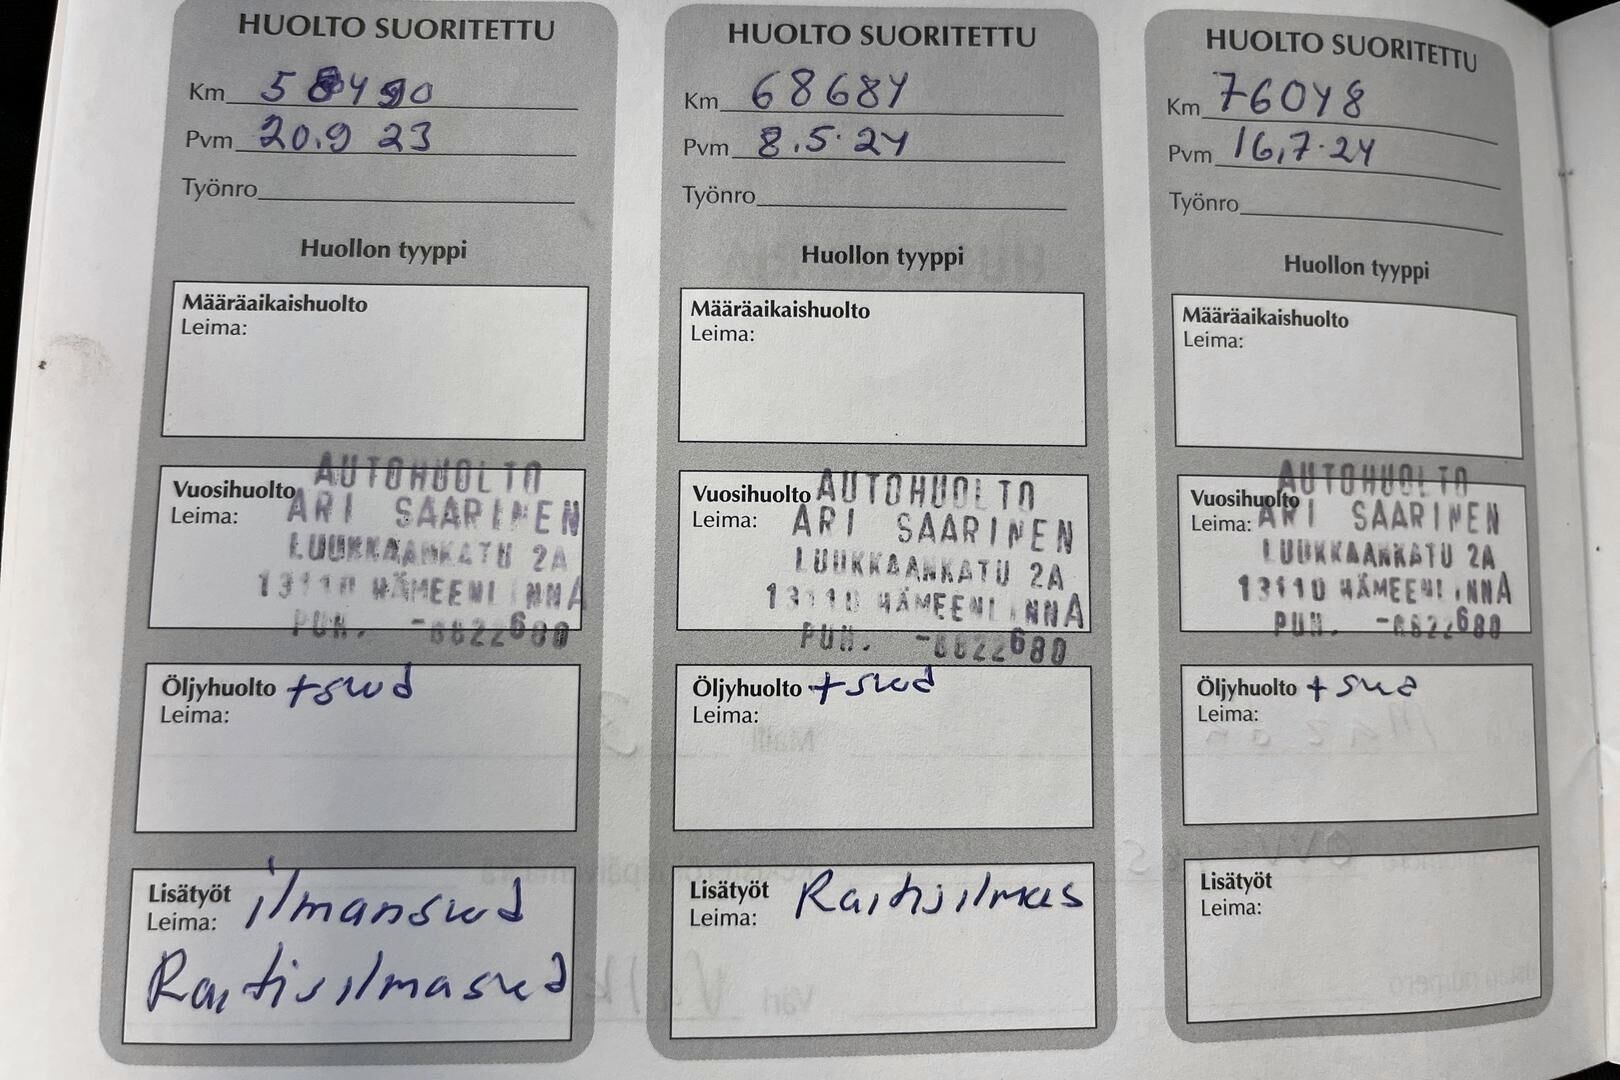 HUOLTO SUORITETTU
Km 58490
Pvm 20.9 23
Työnro
Huollon tyyppi
Määräaikaishuolto
Leima:
Vuosihuolto
Leima:
AUTOHUOLTO
ARI SAARINEN
LUUKKAANKATU 2A
13110 HÄMEENLINNA
PUH. -6822680
Öljyhuolto +swd
Leima:
Lisätyöt ilmanswd
Leima:
Raitisilmaswd
HUOLTO SUORITETTU
Km 68684
Pvm 8.5.24
Työnro
Huollon tyyppi
Määräaikaishuolto
Leima:
Vuosihuolto
Leima:
AUTOHUOLTO
ARI SAARINEN
LUUKKAANKATU 2A
13110 HÄMEENLINNA
PUH. -6822680
Öljyhuolto +swd
Leima:
Lisätyöt Raitisilmas
Leima:
HUOLTO SUORITETTU
Km 76048
Pvm 16,7.24
Työnro
Huollon tyyppi
Määräaikaishuolto
Leima:
Vuosihuolto
Leima:
AUTOHUOLTO
ARI SAARINEN
LUUKKAANKATU 2A
13110 HÄMEENLINNA
PUH. -6822680
Öljyhuolto +swd
Leima:
Lisätyöt
Leima: